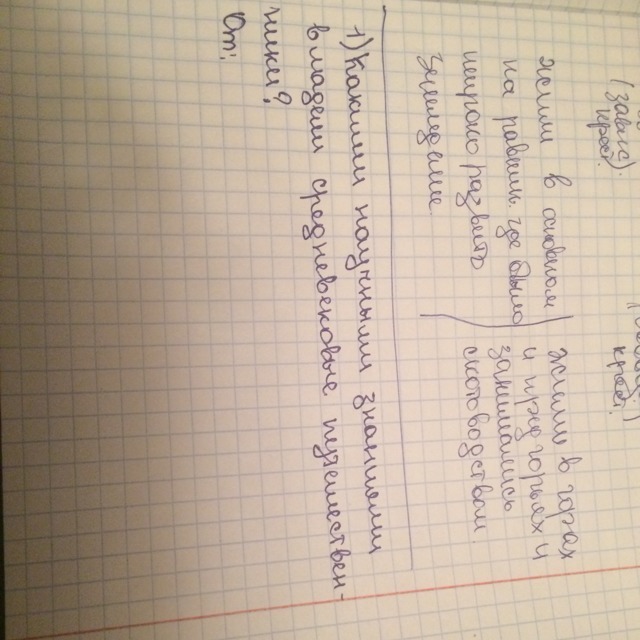 (завис.
крес.)
крес.)
жили в основном
на равнин. где было
широко развито
земледелие.
жили в горах
и предгорьях и
занимались
скотоводством
1) Какими научными знаниями
владели средневековые путешествен-
ники?
От: